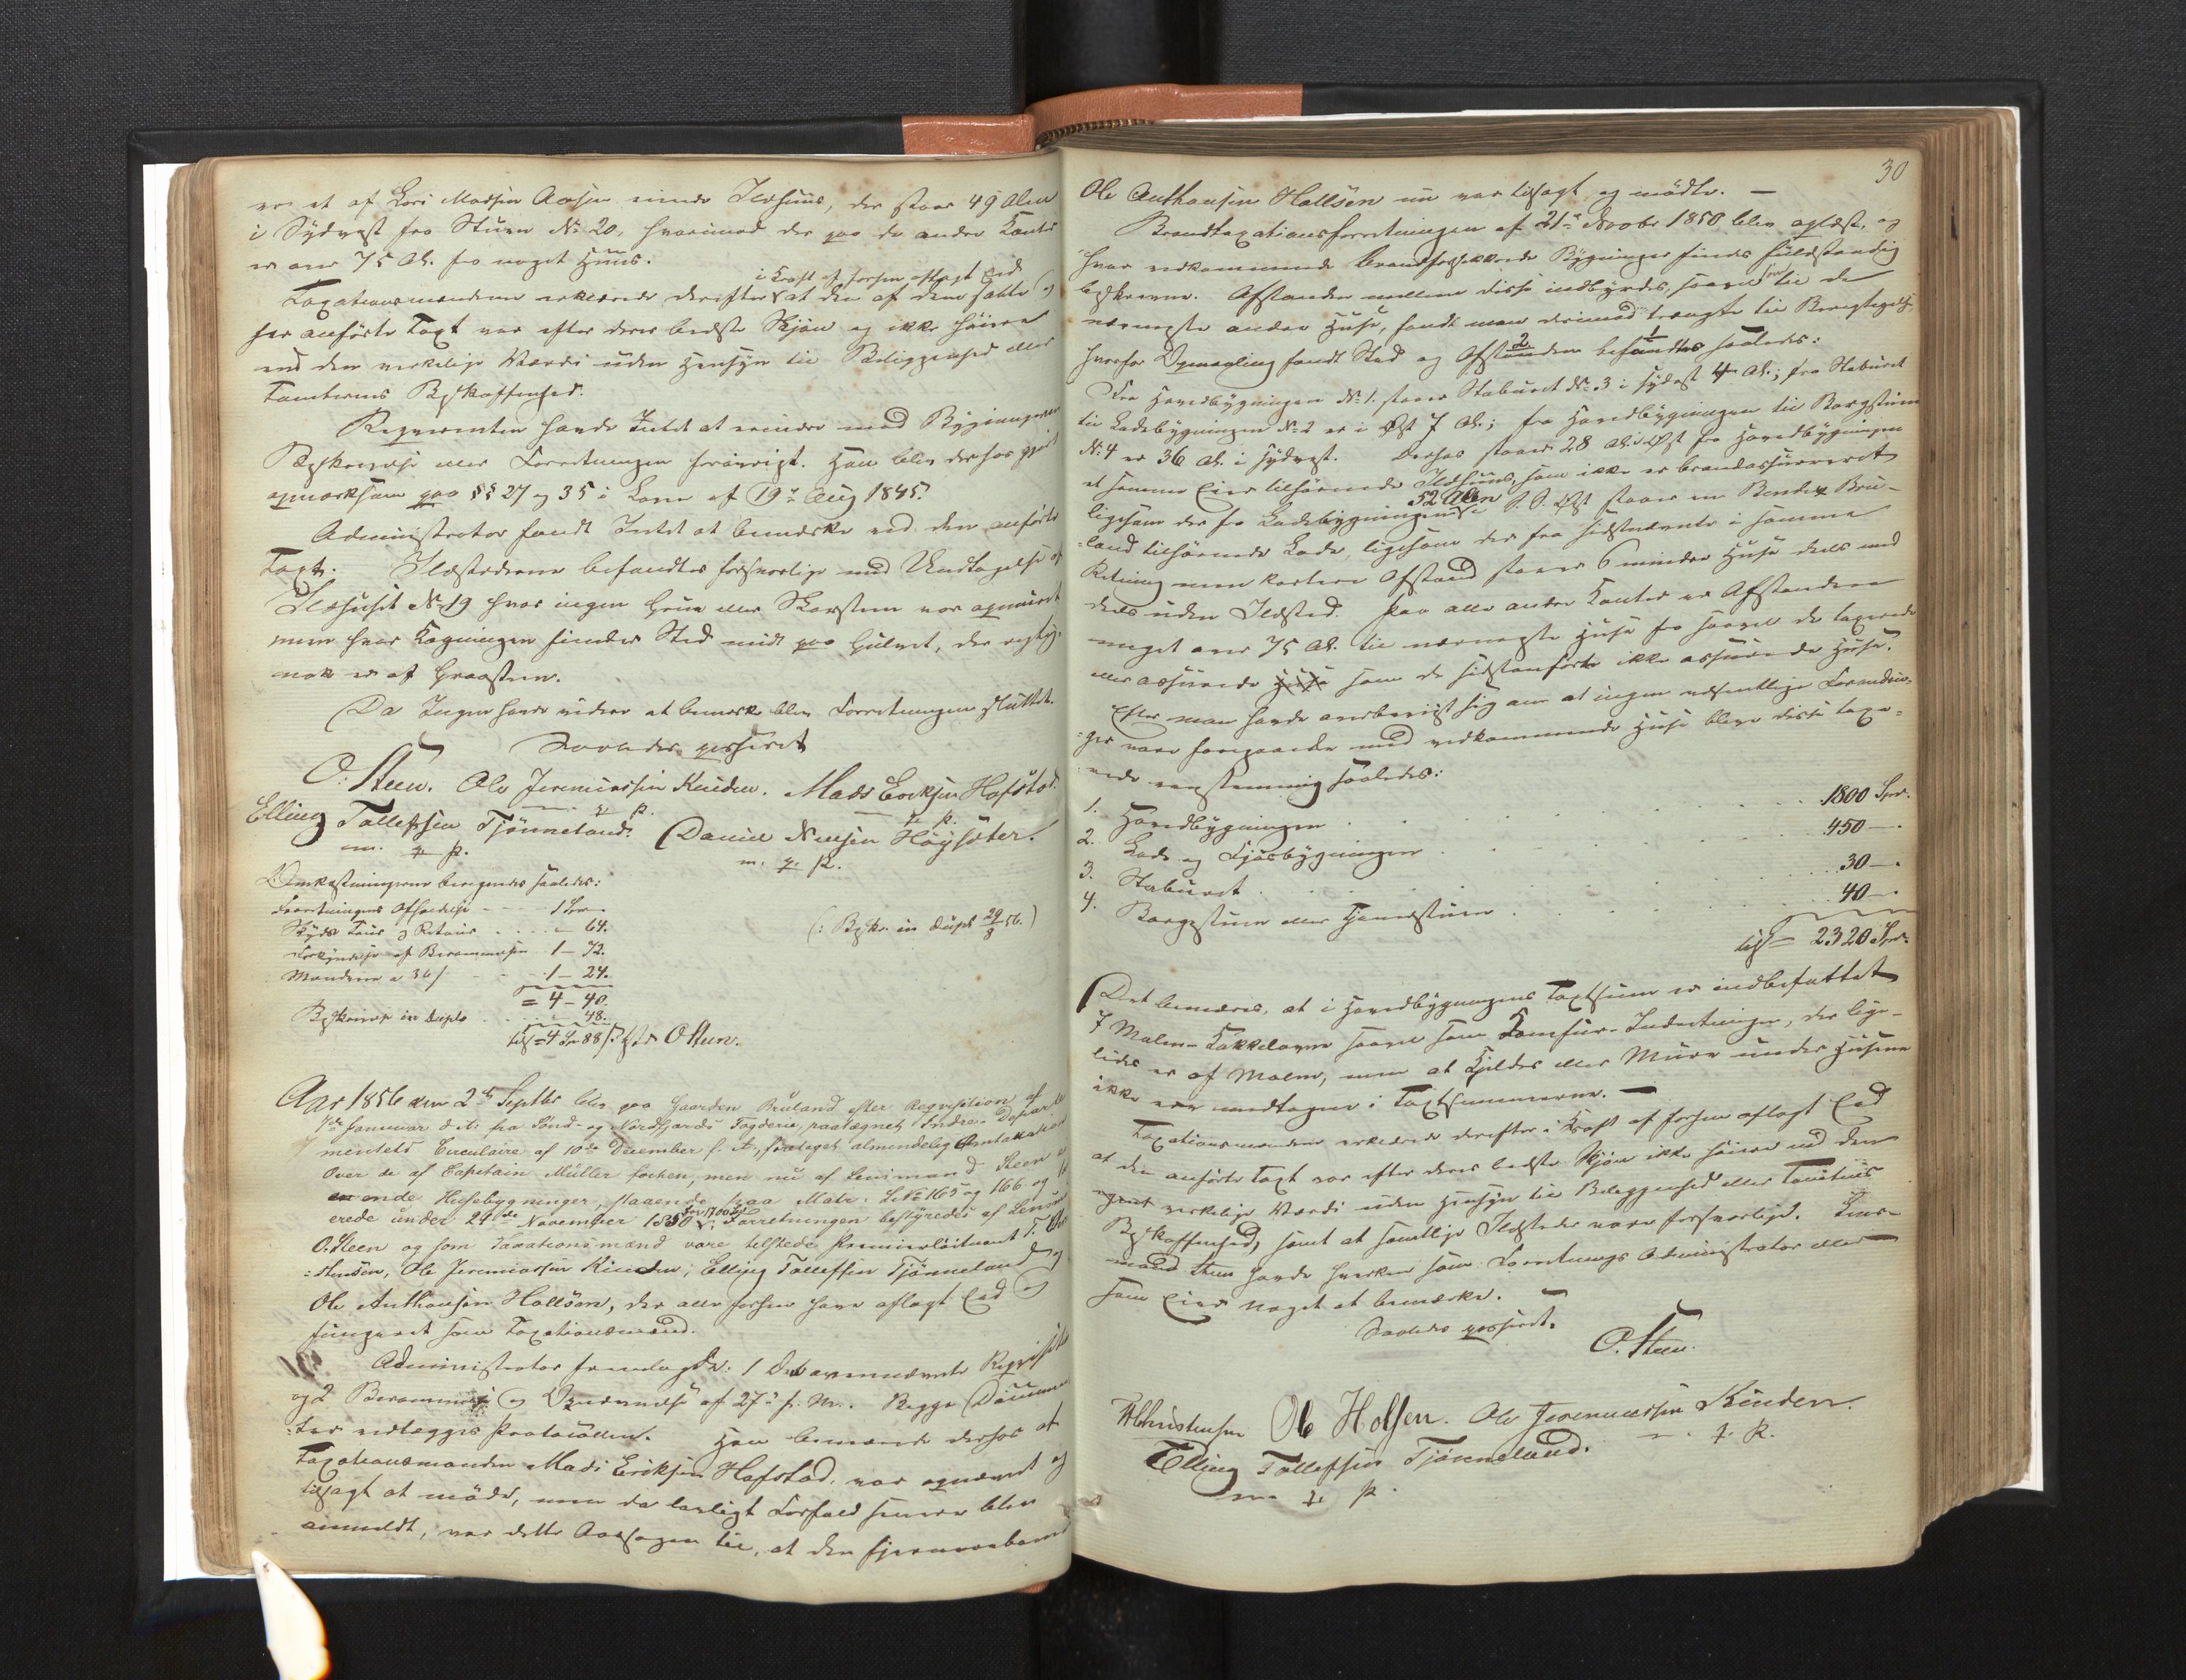 ere et af Lars Madsen Aasen eiende Ildhuus, der staar 49 Alen
i Sydvest fra Stuen No 20, hvorimod der paa de andre Kanter
er over 75 Al. fra noget Huus.
i Kraft af forhen aflagt Eed
Taxationsmændene erklærede derefter at den af dem satte og
her anførte Taxt var efter deres bedste Skjøn og ikke høiere
end den virkelige Værdi uden Hensyn til Beliggenhed eller
Tomternes Beskaffenhed.
Reqvirenten havde Intet at erindre mod Bygningernes
Beskrivelse eller Forretningen forøvrigt. Han blev derhos gjort
opmærksom paa §§ 27 og 35 i Loven af 19de Aug 1845.
Administrator fandt Intet at bemærke ved den anførte
Taxt. Ildstederne befandtes forsvarlige med Undtagelse af
Ildhuset No 19 hvor ingen Grue eller Skorsteen var opmuret
men hvor Kogningen finder Sted midt paa Gulvet, der rigtig-
nok er af Graasteen.
Da Ingen havde videre at bemærke blev Forretningen sluttet.
Saaledes passeret
O. Steen. Ole Jeremiassen Kinden. Mads Eriksen Hafstad.
m. f. P. m. f. P.
Elling Tollefsen Tjønneland. Daniel Nielsen Høysæter.
m. f. P. m. f. P.
Omkostningerne beregnedes saaledes:
Forretningens Afholdelse - - - 1 Spd -
Skyds Tour og Retour . . . . - 64.
Forkyndelse af Berammelsen 1 - 72.
Mændene a 36 s - - - 1 - 24.
= 4 - 40.
Beskrivelse in duplo . . . - 48.
tils = 4 Spd 88 s. O Steen.
(: Beskr. in dupl 29/8 56.)
Aar 1856 den 2den Septbr blev paa Gaarden Bruland efter Reqvisition af
7de Januar d. A. fra Sønd- og Nordfjords Fogderie, paategnet Indre-Departe
mentets Circulaire af 10de December f. A., foretaget almindelig Omtaxation
over de af Capitain Müller forhen, men nu af Lensmand Steen ei
ende Huusebygninger, staaende paa Matr. L No 165 og 166 og
erede under 21de November 1850 for 1700 Spd. Forretningen bestyredes af Lensmand
O. Steen og som Taxationsmænd vare tilstede Premierløitnant T. Chri
stensen, Ole Jeremiassen Kinden, Elling Tollefsen Tjønneland og
Ole Anthonsen Hallsøen, der alle forhen have aflagt Eed og
fungeret som Taxationsmænd.
Administrator fremlagde: 1 Det ovennævnte Reqvisition
og 2 Berammelse og Opnævnelse af 27de f. M. Begge Docume
ter vedlægges Protocollen. Han bemærkede derhos at
Taxationsmanden Mads Eriksen Hafstad, var opnævnt og
tilsagt at møde, men da lovligt Forfald senere blev
anmeldt, var dette Aarsagen til, at den fjernereboende
30
Ole Anthonsen Hallsøen nu var tilsagt og mødte. —
Brandtaxationsforretningen af 21de Novbr 1850 blev oplæst, og
hvor vedkommende brandforsikkrede Bygninger findes fuldstændig
beskrevne. Afstanden mellem disse indbyrdes, saavel som til de
nærmeste andre Huse, fandt man derimod trængte til Berigtigelse
hvorfor Opmaaling fandt Sted og Afstanden befandtes saaledes:
Fra Hovedbygningen No 1. staaer Stabuuret No 3 i Sydost 4 Al.; fra Stabuuret
til Ladebygningen No 2 er i Øst 7 Al.; fra Hovedbygningen til Borgstuen
No 4 er 36 Al. i Sydvest. Derhos staaer 28 Al. i Øst fra Hovedbygningen
et samme Eier tilhørende Ildhuus, som ikke er brandassureret
ligesom der fra Ladebygningen 52 Alen i S. S. Øst staaer en Bonde paa Bru-
land tilhørende Lade, ligesom der fra sidstnævnte i samme
Retning men kortere Afstand staaer 6 mindre Huse deels med
deels uden Ildsted. Paa alle andre Kanter er Afstanden
meget over 75 Al. til nærmeste Huse fra saavel de taxerede
eller assurerede Huse som de sidstanførte ikke assurerede Huse.
Efter man havde overbeviist sig om at ingen væsentlige Forandrin-
ger vare foregaaede med vedkommende Huse bleve disse taxe-
rede eenstemmig saaledes:
1. Hovedbygningen . . . . . . 1800 Spd.
2. Lade og Fjøsbygningen . . . . . 450 — .
3. Stabuuret . . . . . . 30 — .
4. Borgestuen eller Tjenestuen . . . . . 40 — .
tils = 2320 Spd.
Det bemærkes, at i Hovedbygningens Taxtsum er indbefattet
7 Malm-Kakkelovne saavel som Komfur-Indretninger, der lige-
ledes er af Malm, men at Kjelder eller Mure under Husene
ikke ere medtagne i Taxtsummerne. —
Taxationsmændene erklærede derefter i Kraft af forhen aflagt Eed
at den anførte Taxt var efter deres bedste Skjøn ikke høiere end den
virkelige Værdi uden Hensyn til Beliggenhed eller Tomtens
Beskaffenhed, samt at samtlige Ildsteder vare forsvarlige. Lens-
mand Steen havde hverken som Forretnings Administrator eller
som Eier noget at bemærke.
Saaledes passeret.
O. Steen.
T Christensen Ole Holsen. Ole Jeremiassen Kinden.
m. f. P.
Elling Tollefsen Tjønneland.
m. f. P.